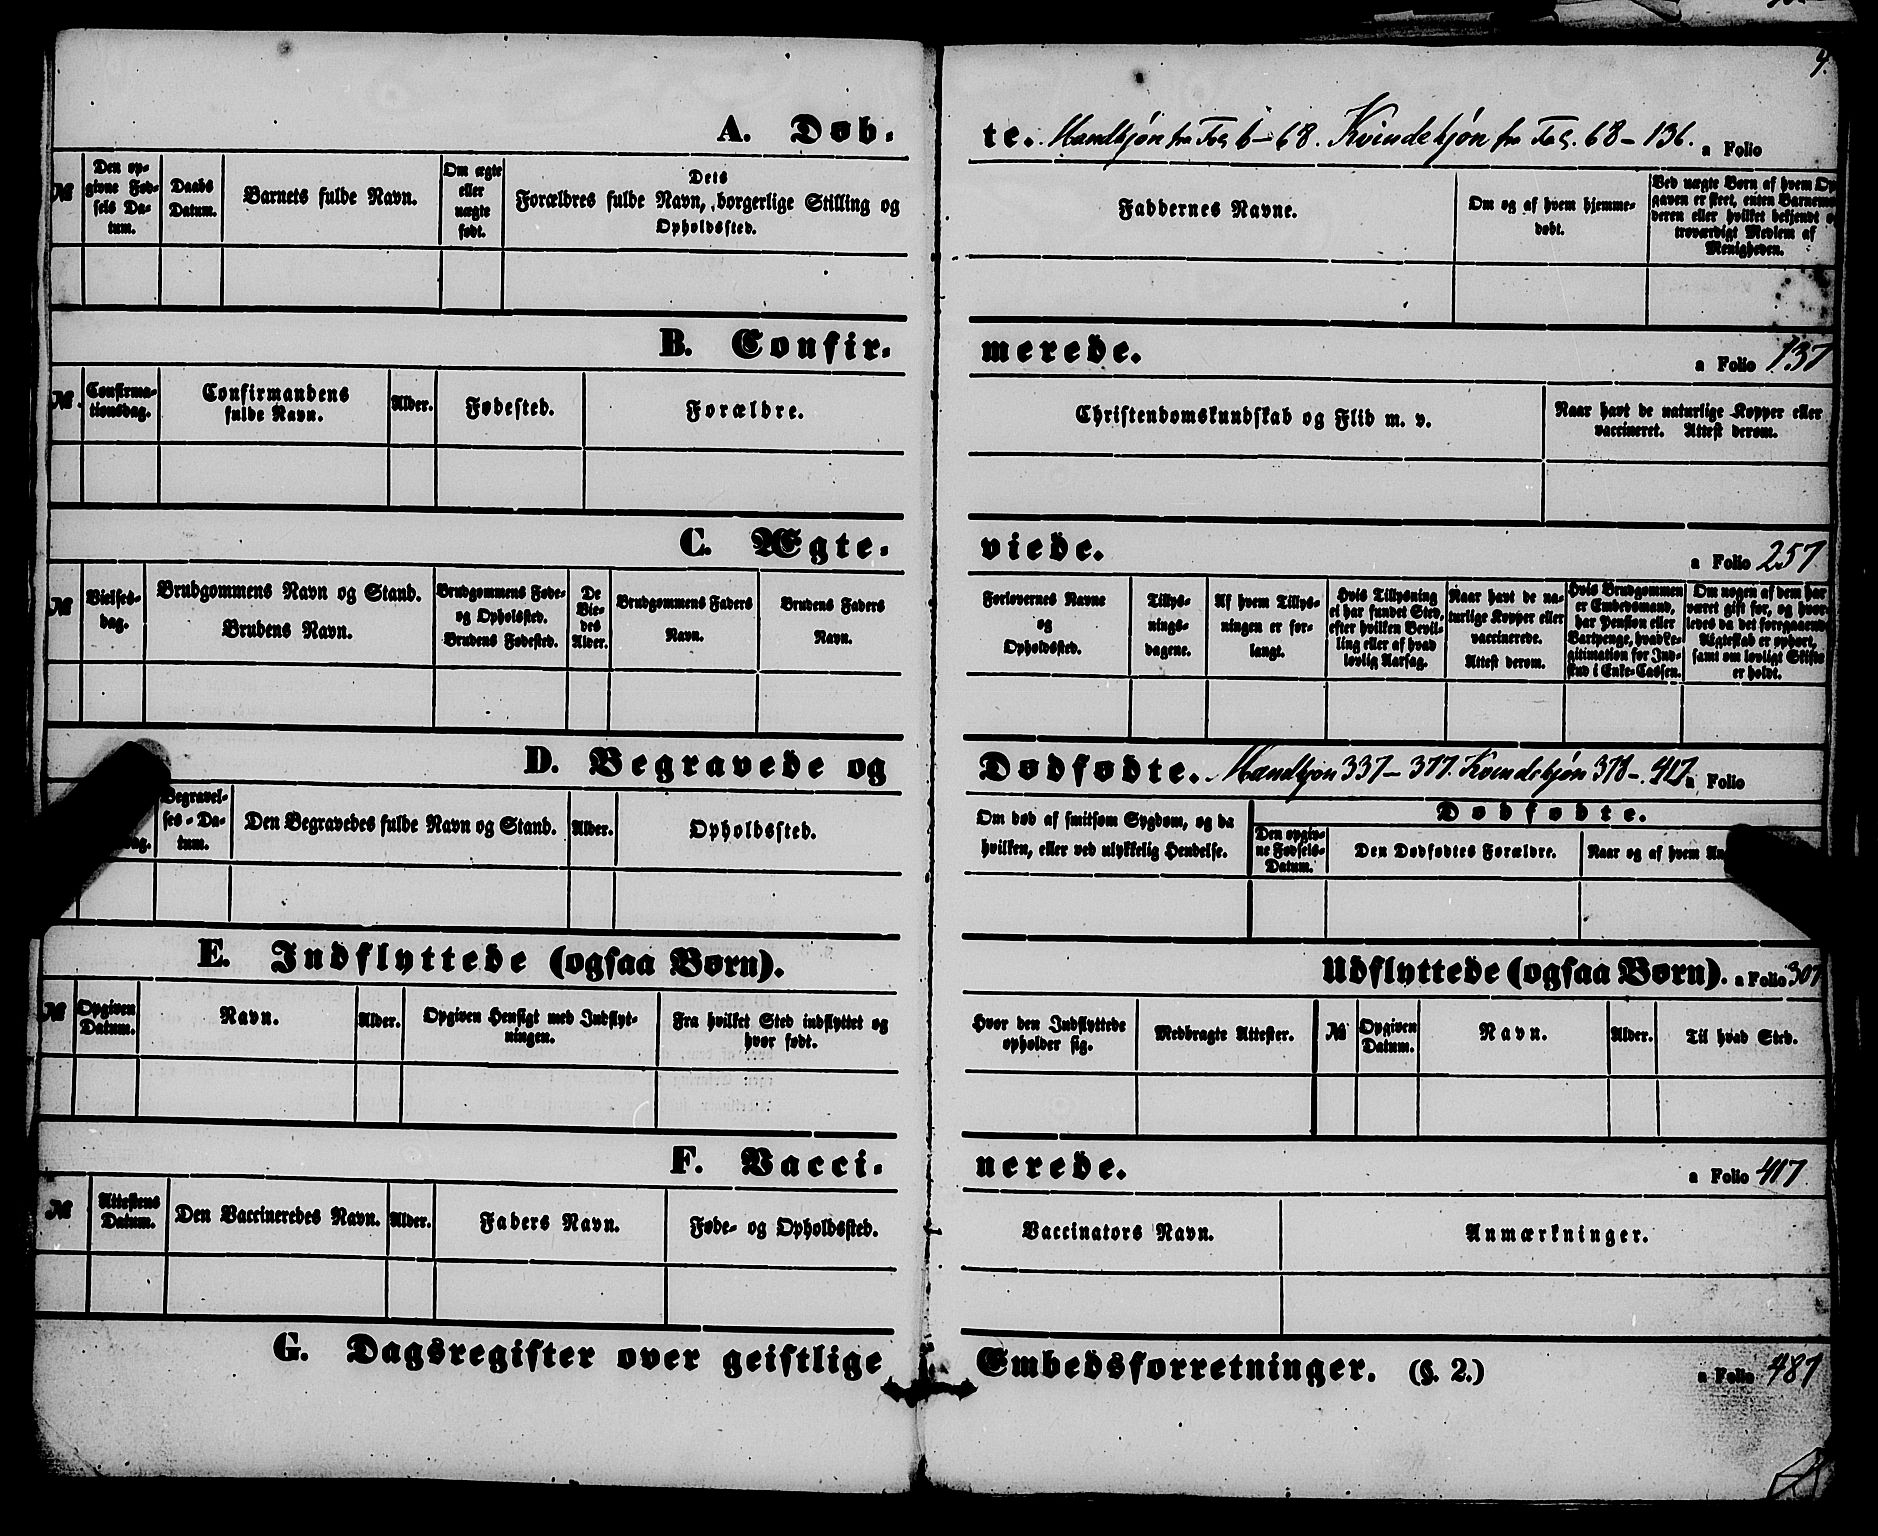 4.
A. Døb-
te. Mandkjøn fra Fol. 6-68. Kvindekjøn fra Fol. 68-136. a Folio
№
Den op-
givne Fød-
sels Da-
tum.
Daabs
Datum.
Barnets fulde Navn.
Om ægte
eller
uægte
født.
Dets
Forældres fulde Navn, borgerlige Stilling og
Opholdssted.
Faddernes Navne.
Om og af hvem hjemme-
døbt.
Ved uægte Børn af hvem Op-
gaven er skeet, enten Barnemo-
deren eller hvilket bekjendt og
troværdigt Medlem af
Menigheden.
B. Confir-
merede.
a Folio 137
№.
Confirma-
tionsdag.
Confirmandens
fulde Navn.
Alder.
Fødested.
Forældre.
Christendomskundskab og Flid m. v.
Naar havt de naturlige Kopper eller
vaccineret. Attest derom.
C. Ægte-
viede.
a Folio 257
№
Vielses-
dag.
Brudgommens Navn og Stand.
Brudens Navn.
Brudgommens Føde-
og Opholdssted.
Brudens Fødested.
De
Vie-
des
Alder.
Brudgommens Faders
Navn.
Brudens Faders
Navn.
Forlovernes Navne
og
Opholdssted.
Tillys-
nings-
dagene.
Af hvem Tillys-
ningen er for-
langt.
Hvis Tillysning
ei har fundet Sted,
efter hvilken Bevil-
ling eller af hvad
lovlig Aarsag.
Naar havt de na-
turlige Kopper eller
vaccinerede.
Attest derom.
Hvis Brudgommen
er Embedsmand,
har Pension eller
Vartpenge, hvad Le-
gitimation for Ind-
skud i Enke-Cassen.
Om nogen af dem har
været gift før, og hvor-
ledes da det foregaaende
Ægteskab er ophørt,
samt om lovligt Skifte
er holdt.
D. Begravede og
Dødfødte. Mandkjøn 337-377. Kvindekjøn 378-417 a Folio
Begravel-
ses-Da-
tum.
Den Begravedes fulde Navn og Stand.
Alder.
Opholdssted.
Om død af smitsom Sygdom, og da
hvilken, eller ved ulykkelig Hendelse.
Dødfødte.
Den opgiv-
ne Fødsels-
Datum.
Den Dødfødtes Forældre.
Naar og af hvem
E. Indflyttede (ogsaa Børn).
Udflyttede (ogsaa Børn). a Folio 307
№
Opgiven
Datum.
Navn.
Alder.
Opgiven Hensigt med Indflyt-
ningen.
Fra hvilket Sted indflyttet og
hvor født.
Hvor den Indflyttede
opholder sig.
Medbragte Attester.
№
Opgiven
Datum.
Navn.
Alder.
Til hvad Sted.
F. Vacci-
nerede.
a Folio 417
№
Attestens
Datum.
Den Vaccineredes Navn.
Alder.
Faders Navn.
Føde- og Opholdssted.
Vaccinators Navn.
Anmærkninger.
G. Dagsregister over geistlige
Embedsforretninger. (§. 2.)
a Folio 487